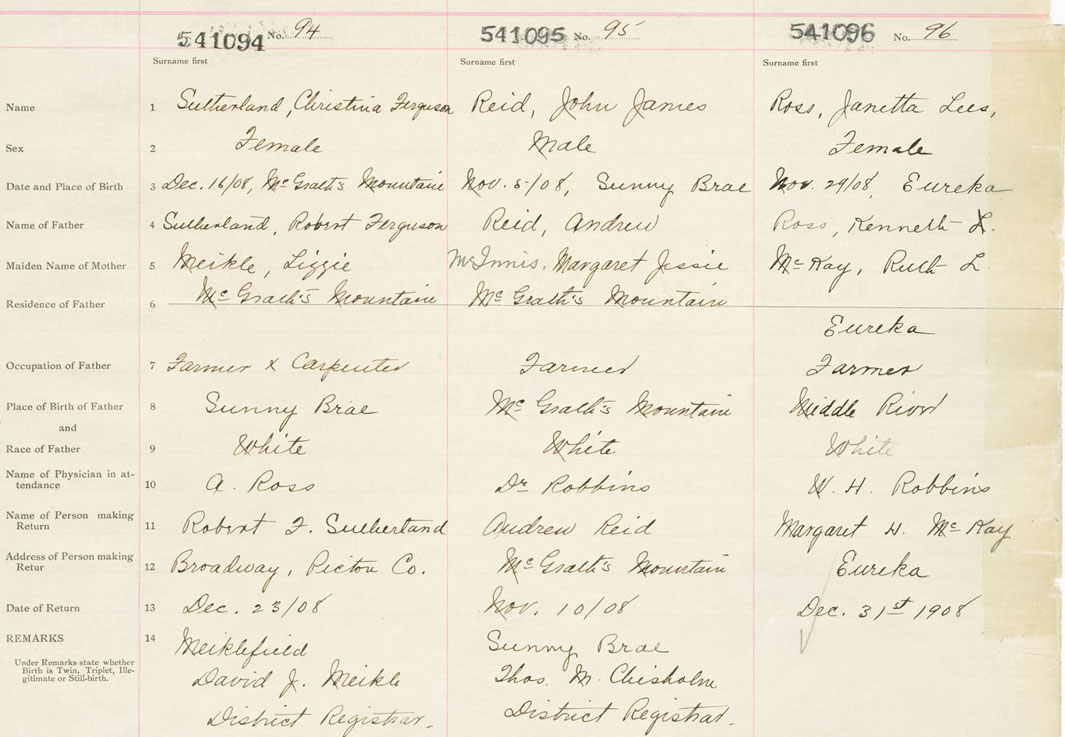 541094 No. 94 541095 No. 95 541096 No. 96
Surname first Surname first Surname first
Name 1 Sutherland, Christina Ferguson Reid, John James Ross, Janetta Lees,
Sex 2 Female Male Female
Date and Place of Birth 3 Dec. 16/08, McGrath's Mountain Nov. 5/08, Sunny Brae Nov. 29/08, Eureka
Name of Father 4 Sutherland, Robert Ferguson Reid, Andrew Ross, Kenneth L.
Maiden Name of Mother 5 Meikle, Lizzie McInnis. Margaret Jessie McKay, Ruth L
Residence of Father 6 McGrath's Mountain McGrath's Mountain
Eureka
Occupation of Father 7 Farmer & Carpenter Farmer Farmer
Place of Birth of Father 8 Sunny Brae McGrath's Mountain Middle River
and
Race of Father 9 White White White
Name of Physician in at-
tendance 10 A. Ross Dr Robbins W. H. Robbins
Name of Person making
Return 11 Robert F. Sutherland Andrew Reid Margaret H. McKay
Address of Person making
Retur 12 Broadway, Pictou Co. McGrath's Mountain Eureka
Date of Return 13 Dec. 23/08 Nov. 10/08 Dec. 31st 1908
REMARKS 14 Meiklefield Sunny Brae
Under Remarks state whether
Birth is Twin, Triplet, Ille-
gitimate or Still-birth.
David J. Meikle Thos. M. Chisholm
District Registrar. District Registrar.